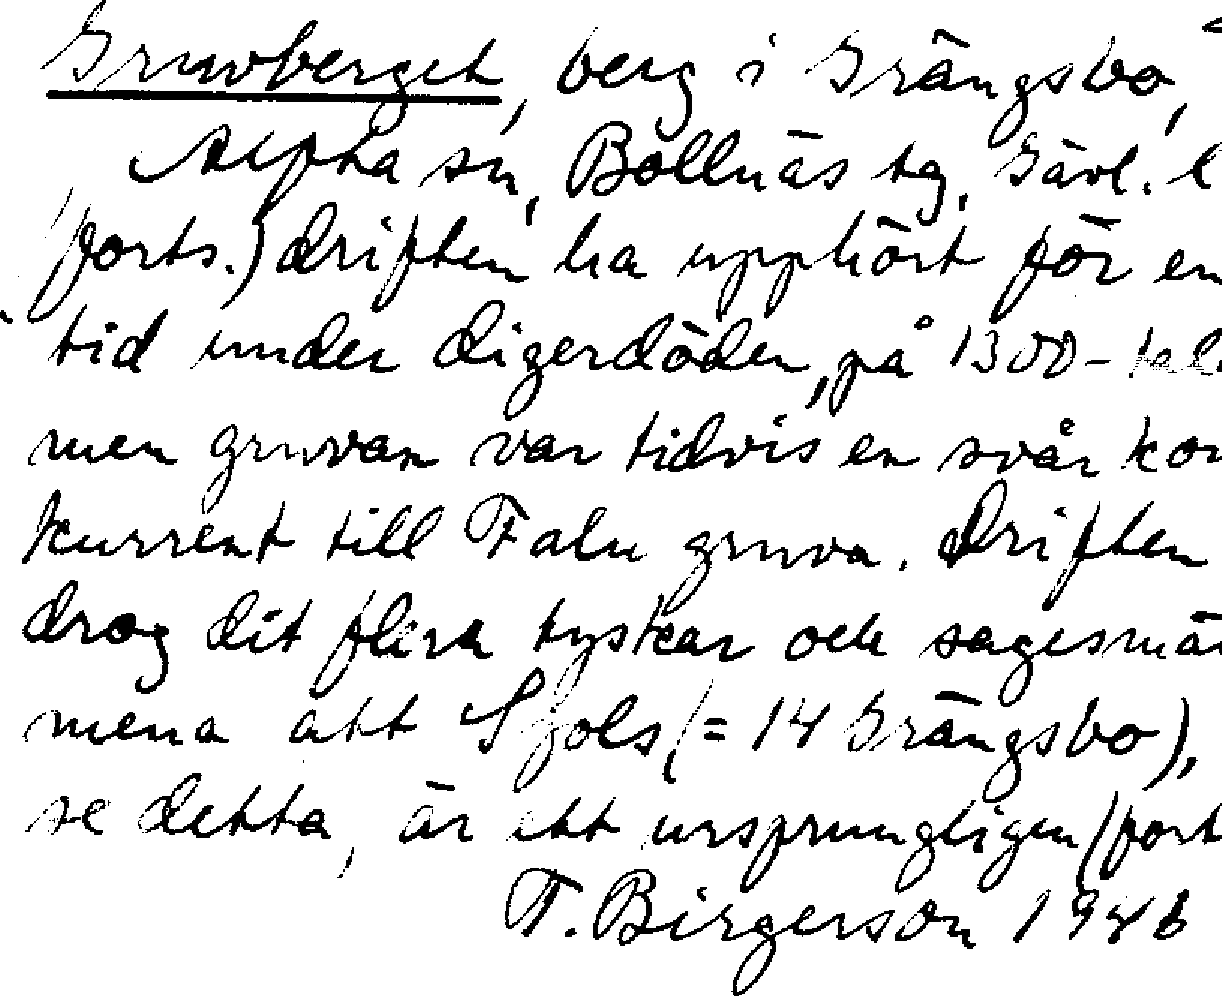 Gruvberget, berg i Grängsbo,
Alfta sn, Bollnäs tg, Gävl. l
(forts.) driften ha upphört för en
tid under digerdöden, på 1300-tal
men gruvan var tidvis en svår kon
kurrent till Falu gruva. Driften
drog dit flera tyskar och sagesmän
mena att Sjols (= 14 Grängsbo),
se detta, är ett ursprungligen (fort
T. Birgerson 1946